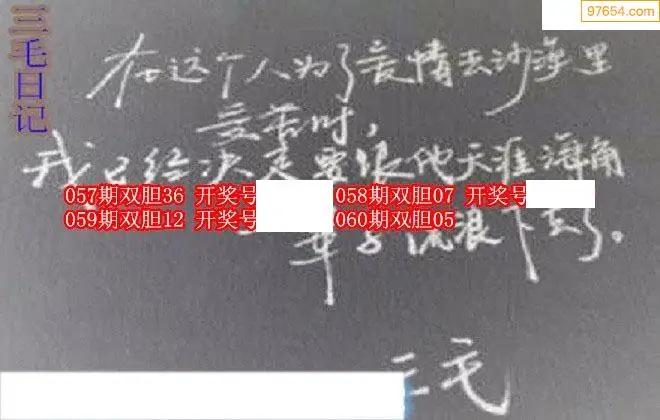 97654.com
三毛日记
在这个人为了爱情去沙漠里
受苦时,
我已经决定要跟他天涯海角
057期双胆36 开奖号
058期双胆07 开奖号
059期双胆12 开奖号
060期双胆05
一辈子流浪下去了。
三毛